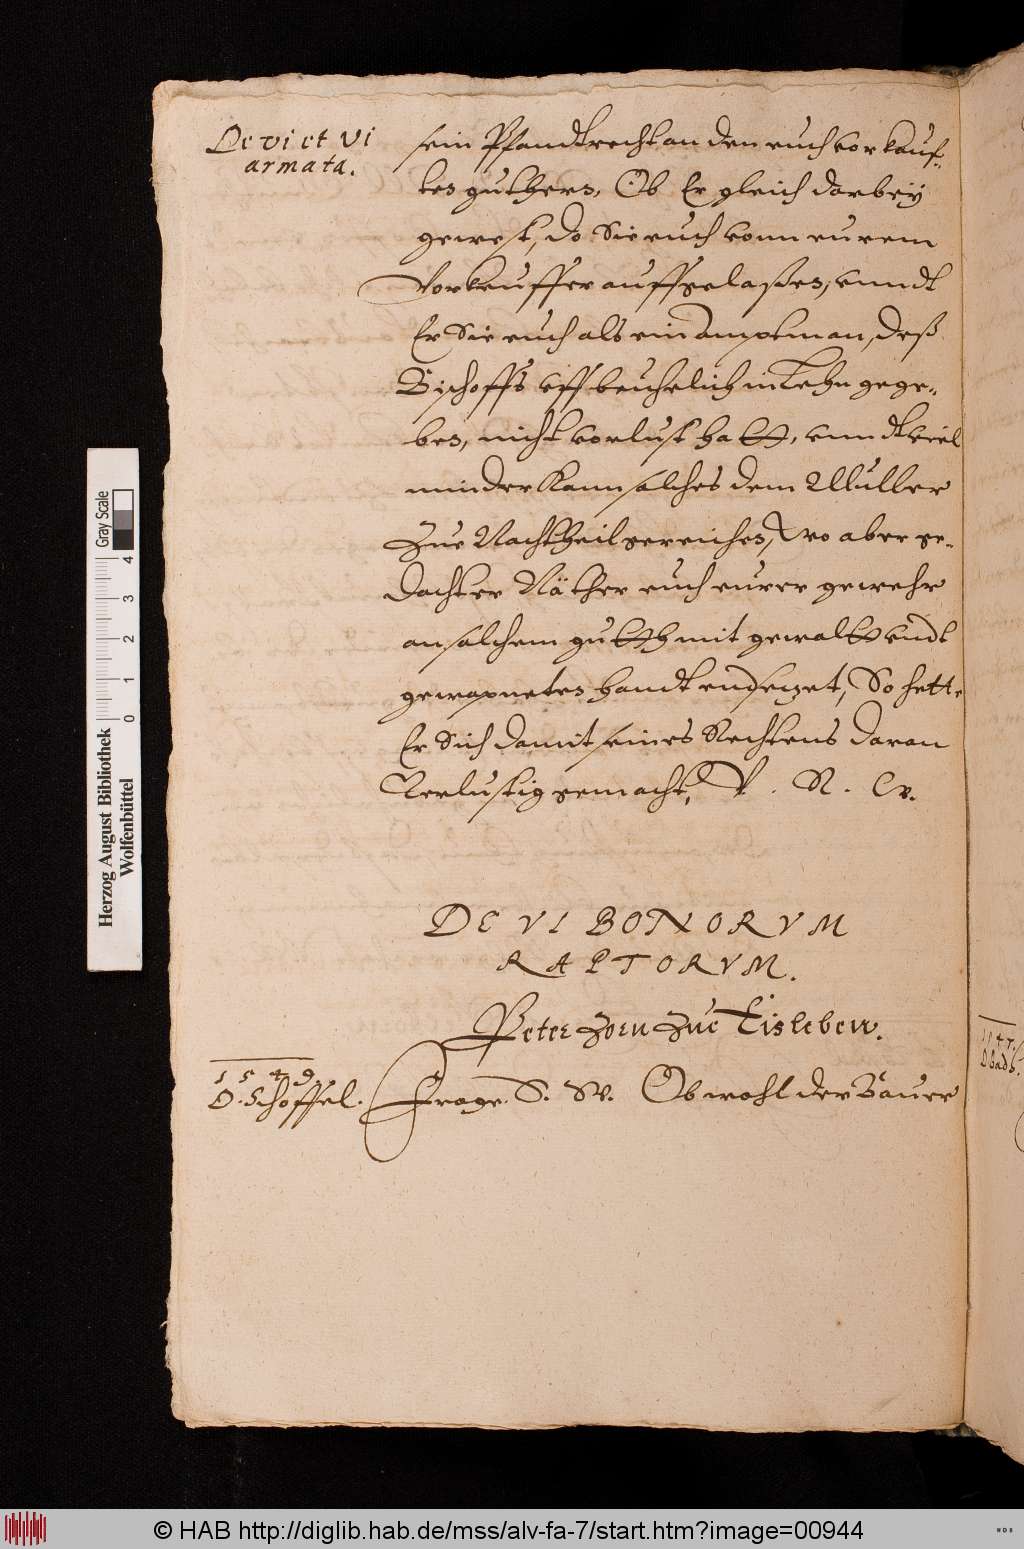 De vi et vi
armata.
sein Pfandtrecht an den euch vorkauf-
ten guthern, Ob Er gleich darbeÿ
gewest, do Sie euch vonn eurem
Vorkeuffer auffgelaßen, unndt
Er Sie euch als ein Amptman, deß
Bischoffs uff beuhelich in Lehn gege-
ben, nicht vorlust hatt, unndt viel
minder kann solches dem Muller
Zue Nachtheil gereichen, Wo aber ge-
dachter Näther euch eurer gewehr
an solchem gutth mit gewaltt undt
gewapneter handt endsezet, So hette
Er Sich damit seines Rechtens daran
Verlustig gemacht, V. R. W.
DE VI BONORVM
RAPTORVM.
Peter Zorn Zue Eisleben.
1549
D. Schöffel.
Frage. S. W. Ob wohl der Bauer
Herzog August Bibliothek
Wolfenbüttel
Gray Scale
0 1 2 3 4
© HAB http://diglib.hab.de/mss/alv-fa-7/start.htm?image=00944